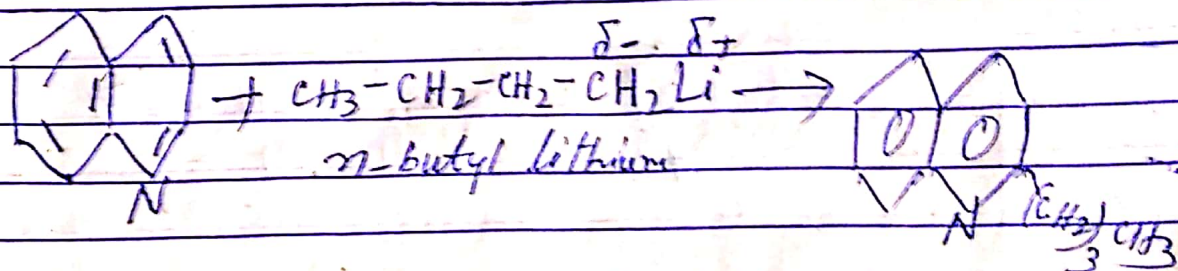 δ- δ+
+ CH3-CH2-CH2-CH2Li →
n-butyl lithium
N
N (CH2)3 CH3